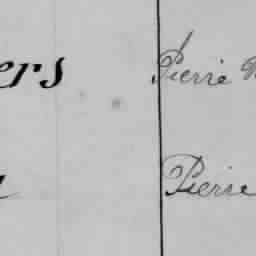 ers Pierre
Pierre